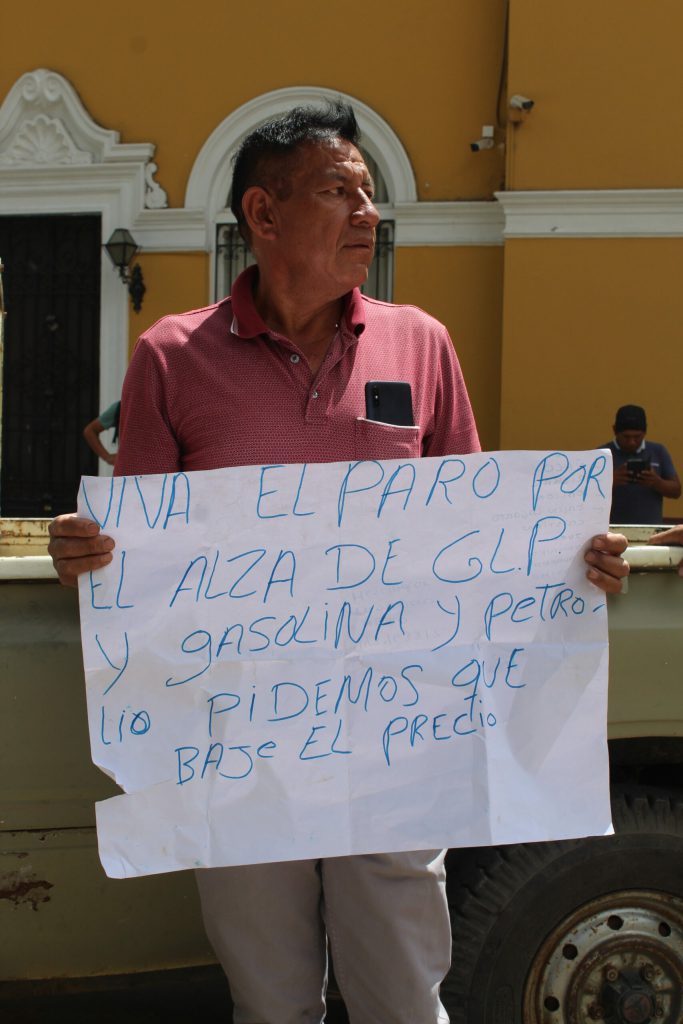 VIVA EL PARO POR
EL ALZA DE G.L.P.
Y GASOLINA Y PETRO-
LIO PIDEMOS QUE
BAJE EL PRECIO